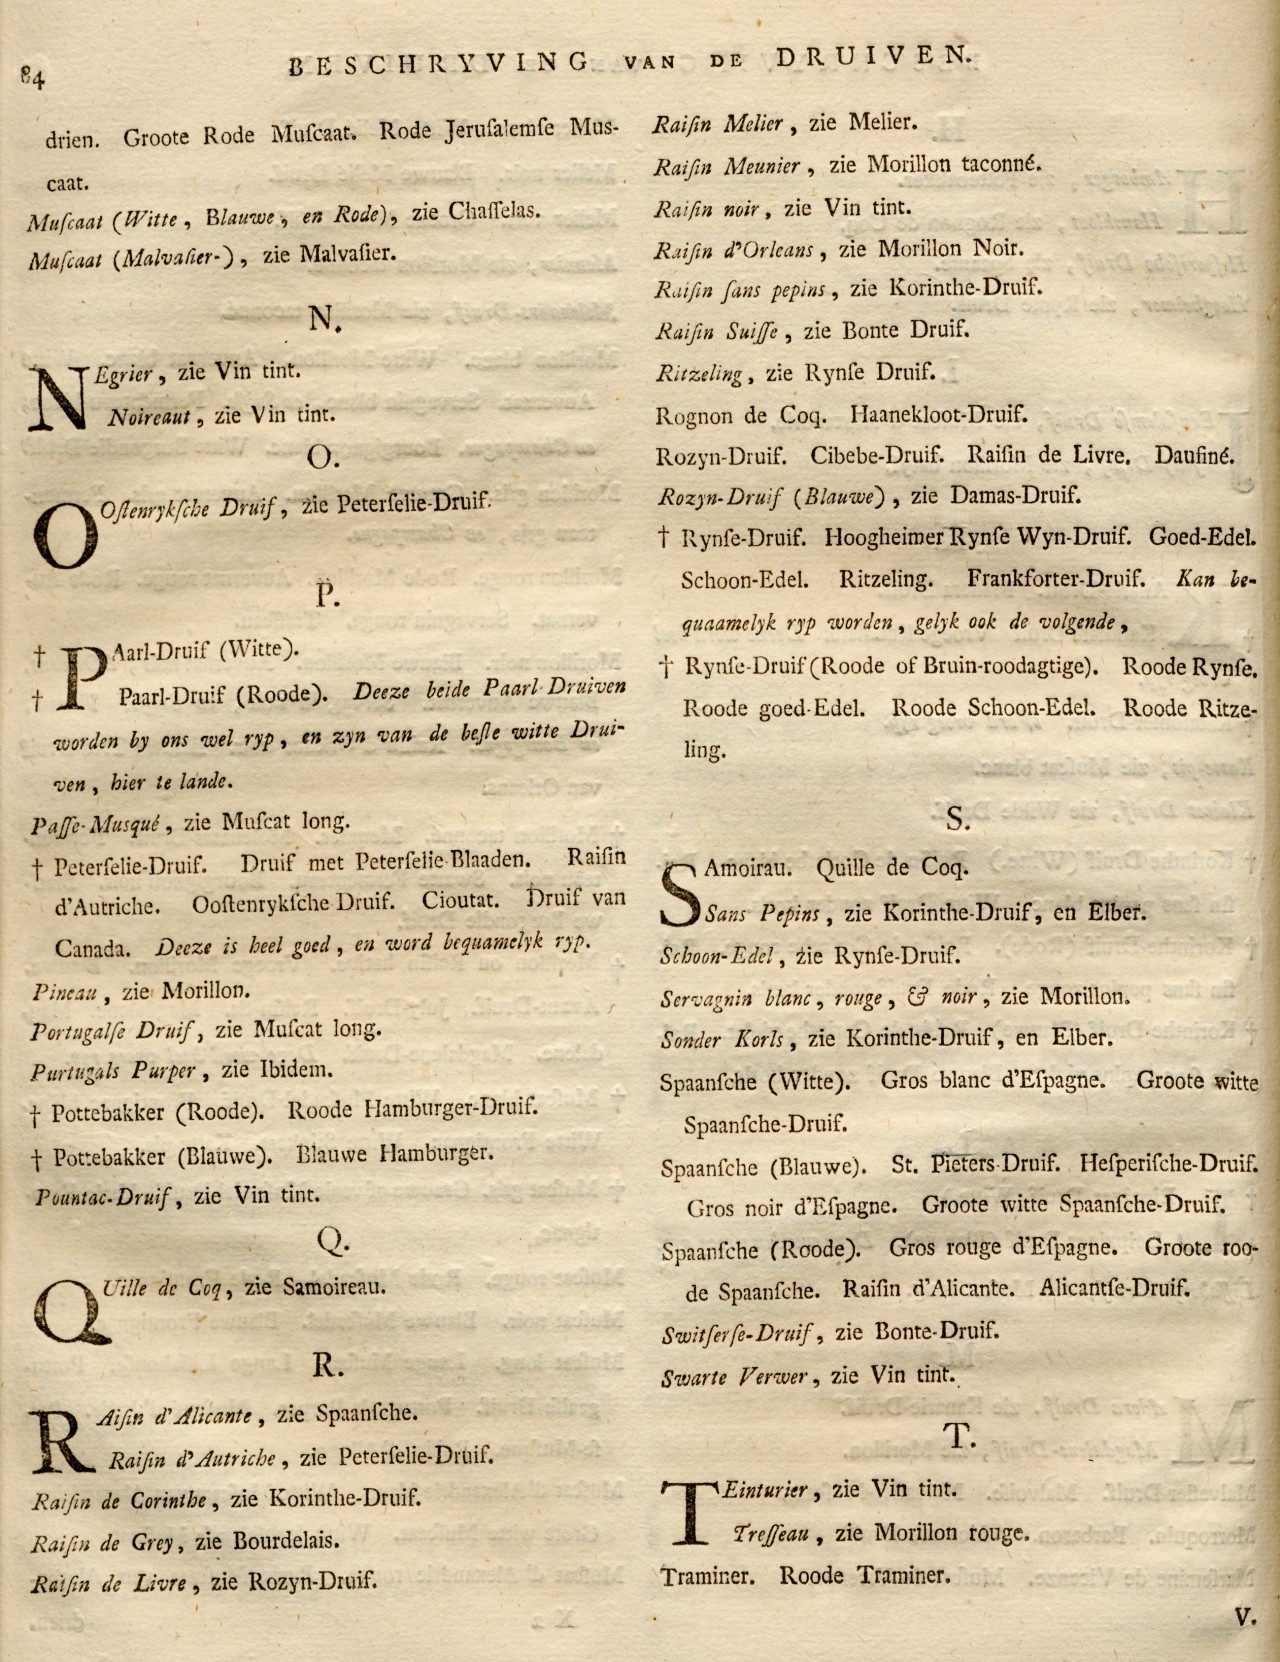 84
BESCHRYVING VAN DE DRUIVEN.
drien. Groote Rode Muſcaat. Rode Jeruſalemſe Mus-
caat.
Muſcaat (Witte, Blauwe, en Rode), zie Chaſſelas.
Muſcaat (Malvaſier-), zie Malvaſier.
N.
NEgrier, zie Vin tint.
Noireaut, zie Vin tint.
O.
OOſtenrykſche Druif, zie Peterſelie-Druif.
P.
† PAarl-Druif (Witte).
† Paarl-Druif (Roode). Deeze beide Paarl-Druiven
worden by ons wel ryp, en zyn van de beſte witte Drui-
ven, hier te lande.
Paſſe-Musqué, zie Muſcat long.
† Peterſelie-Druif. Druif met Peterſelie-Blaaden. Raiſin
d'Autriche. Ooſtenrykſche Druif. Cioutat. Druif van
Canada. Deeze is heel goed, en word bequamelyk ryp.
Pineau, zie Morillon.
Portugalſe Druif, zie Muſcat long.
Purtugals Purper, zie Ibidem.
† Pottebakker (Roode). Roode Hamburger-Druif.
† Pottebakker (Blauwe). Blauwe Hamburger.
Pountac-Druif, zie Vin tint.
Q.
QUille de Coq, zie Samoireau.
R.
RAiſin d'Alicante, zie Spaanſche.
Raiſin d'Autriche, zie Peterſelie-Druif.
Raiſin de Corinthe, zie Korinthe-Druif.
Raiſin de Grey, zie Bourdelais.
Raiſin de Livre, zie Rozyn-Druif.
Raiſin Melier, zie Melier.
Raiſin Meunier, zie Morillon taconné.
Raiſin noir, zie Vin tint.
Raiſin d'Orleans, zie Morillon Noir.
Raiſin ſans pepins, zie Korinthe-Druif.
Raiſin Suiſſe, zie Bonte Druif.
Ritzeling, zie Rynſe Druif.
Rognon de Coq. Haanekloot-Druif.
Rozyn-Druif. Cibebe-Druif. Raiſin de Livre. Dauſiné.
Rozyn-Druif (Blauwe), zie Damas-Druif.
† Rynſe-Druif. Hoogheimer Rynſe Wyn-Druif. Goed-Edel.
Schoon-Edel. Ritzeling. Frankforter-Druif. Kan be-
quaamelyk ryp worden, gelyk ook de volgende,
† Rynſe-Druif (Roode of Bruin-roodagtige). Roode Rynſe.
Roode goed-Edel. Roode Schoon-Edel. Roode Ritze-
ling.
S.
SAmoirau. Quille de Coq.
Sans Pepins, zie Korinthe-Druif, en Elber.
Schoon-Edel, zie Rynſe-Druif.
Servagnin blanc, rouge, & noir, zie Morillon.
Sonder Korls, zie Korinthe-Druif, en Elber.
Spaanſche (Witte). Gros blanc d'Eſpagne. Groote witte
Spaanſche-Druif.
Spaanſche (Blauwe). St. Pieters-Druif. Heſperiſche-Druif.
Gros noir d'Eſpagne. Groote witte Spaanſche-Druif.
Spaanſche (Roode). Gros rouge d'Eſpagne. Groote roo-
de Spaanſche. Raiſin d'Alicante. Alicantſe-Druif.
Switſerſe-Druif, zie Bonte-Druif.
Swarte Verwer, zie Vin tint.
T.
TEinturier, zie Vin tint.
Treſſeau, zie Morillon rouge.
Traminer. Roode Traminer.
V.